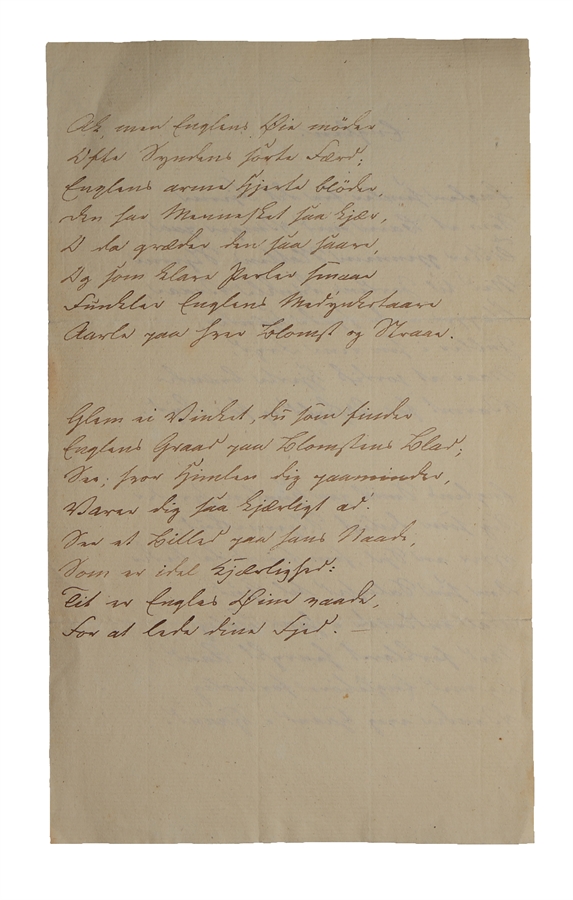 Ak, men Englens Øie möder
Ofte Syndens sorte Færd;
Englens arme Hjerte blöder,
den har Mennesket saa kjær,
O da græder den saa saare,
Og som klare Perler smaae
Funkler Englens Medynkstaare
Aarle paa hver Blomst og Straae.
Glem ei Vinket, du som finder
Englens Graad paa Blomstens Blad;
See, hvor Himlen dig paaminder,
Varer dig saa kjærligt ad.
See et Billed paa hans Naade,
Som er idel Kjærlighed:
Tit er Engles Øine vaade,
For at lede dine Fjed. —